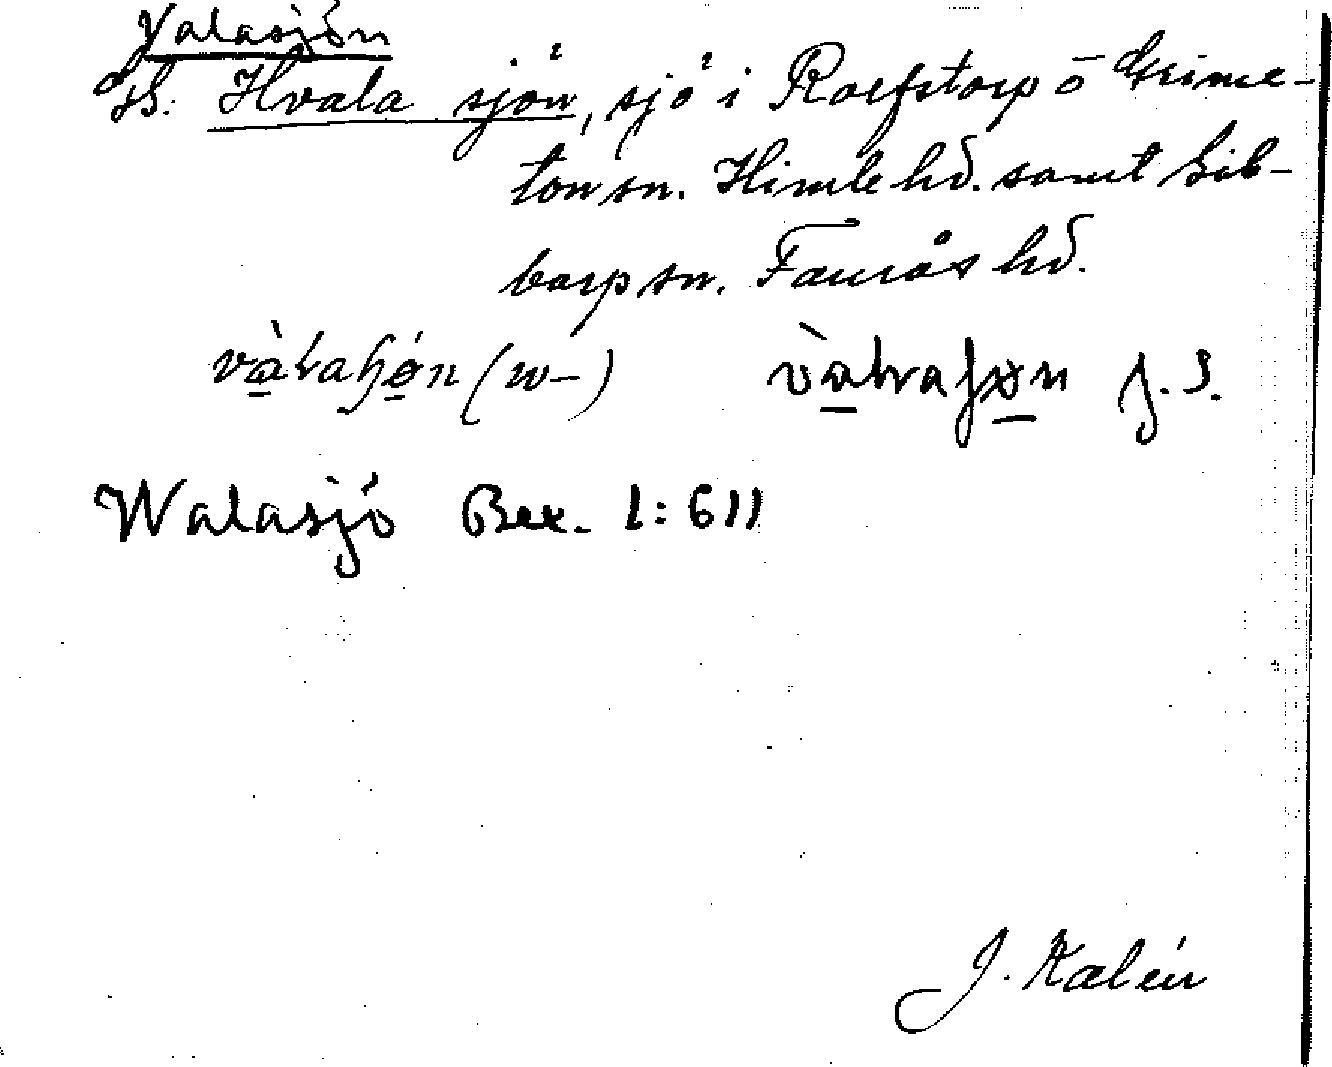 Valasjön
Hvala sjön, sjö i Rolfstorp o Grime-
ton sn. Himle hd. samt Sib-
barp sn. Faurås hd.
vàlaʃøn (w-) vàlvaʃøn J. S.
Walasjö Bex. 1:611
J. Kalén